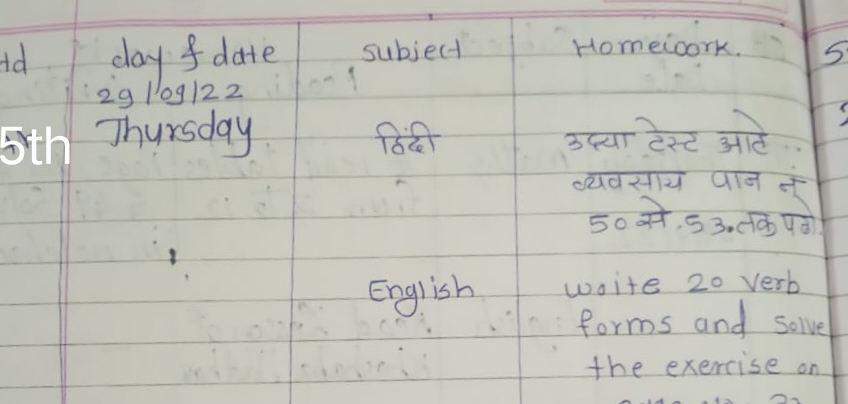 td day & date subject Homework.
29/09/22
5th Thursday हिंदी उद्या टेस्ट आहे
व्यवसाय पान नं
50 से .53.तक पढो.
English write 20 verb
forms and solve
the exercise on